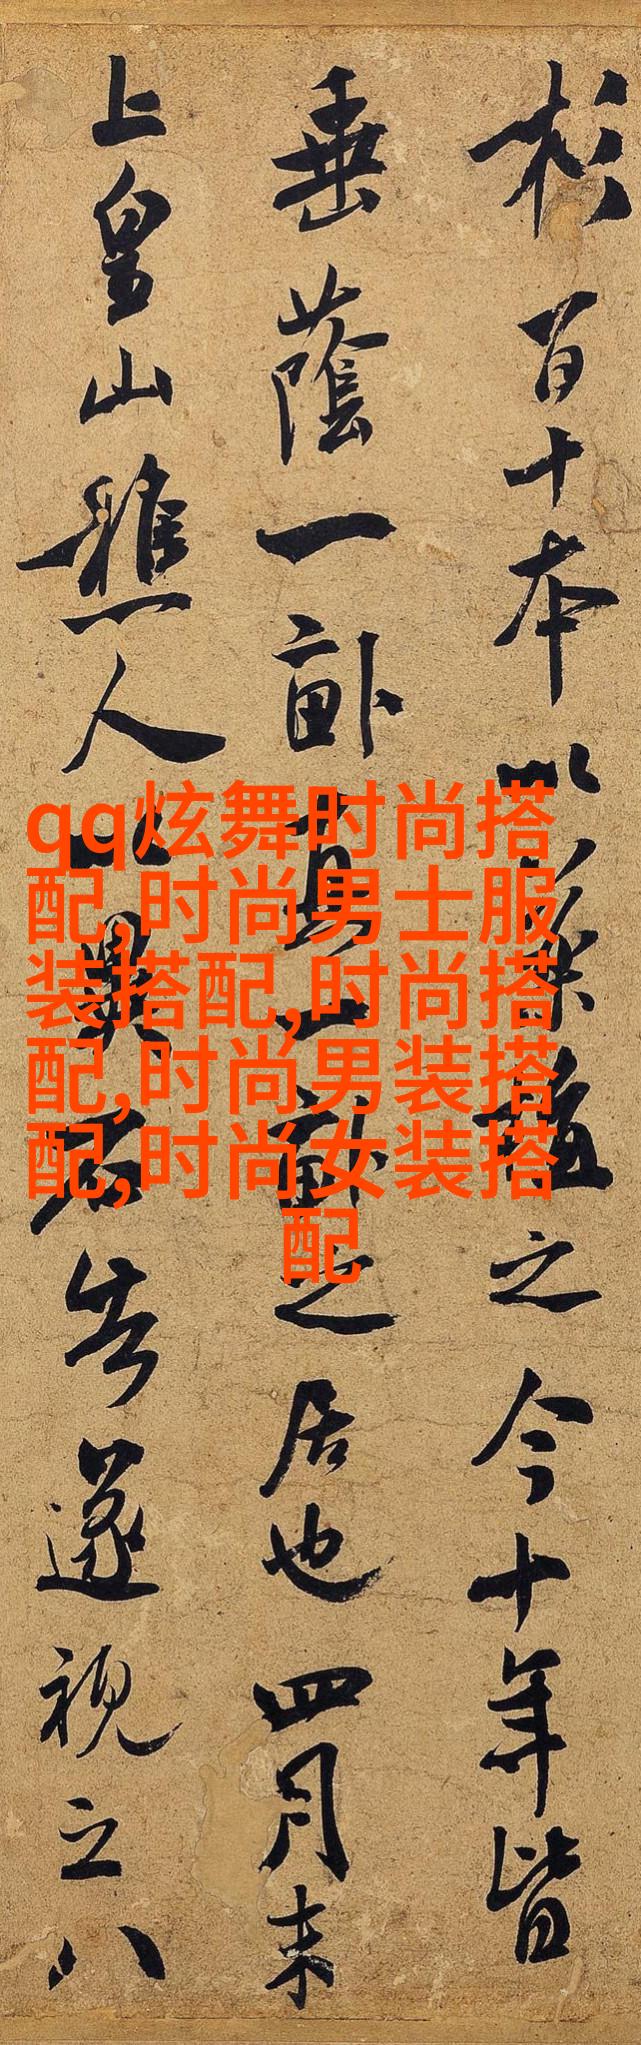 杉百十本以藥植之今十年皆
垂蔭一畝真一畝之居也四月末
上皇山樵人以異石告遂視之八
qq炫舞时尚搭
配,时尚男士服
装搭配,时尚搭
配,时尚男装搭
配,时尚女装搭
配